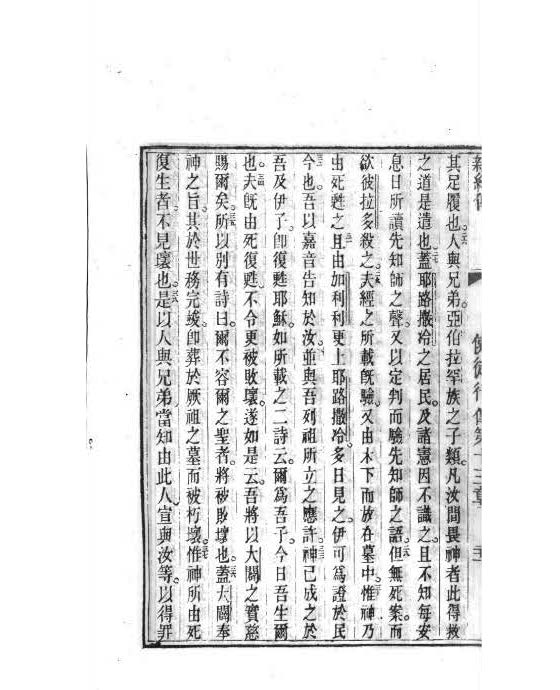 使徒行傳第十三章
其足履也人與兄弟亞伯拉罕族之子類凡汝間畏神者此得救
之道是遣也蓋耶路撒冷之居民及諸憲因不識之且不知每安
息日所讀先知師之聲又以定判而驗先知師之語但無死案而
欲彼拉多殺之夫經之所載旣驗又由木下而放在墓中惟神乃
由死甦之且由加利利更上耶路撒冷多日見之伊可爲證於民
今也吾以嘉音告知於汝並與吾列祖所立之應許神已成之於
吾及伊子卽復甦耶穌如所載之二詩云爾爲吾子今日吾生爾
也夫旣由死復甦不令更被敗壞遂如是云吾將以大闢之實慈
賜爾矣所以別有詩曰爾不容爾之聖者將被敗壞也蓋大闢奉
神之旨其於世務完竣卽葬於厥祖之墓而被朽壞惟神所由死
復生者不見壞也是以人與兄弟當知由此人宣與汝等以得罪